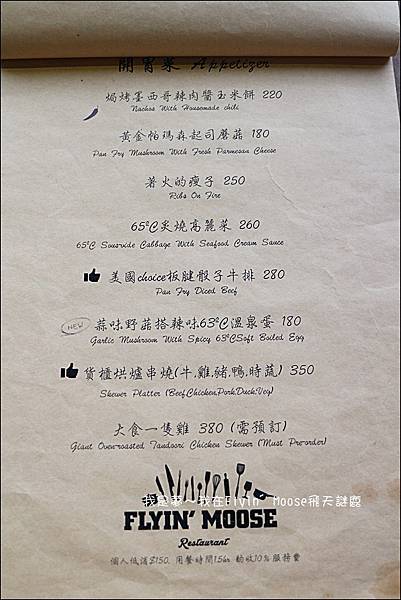 開胃菜 Appetizer
焗烤墨西哥辣肉醬玉米餅 220
Nachos With Housemade chili
黃金帕瑪森起司蘑菇 180
Pan Fry Mushroom With Fresh Parmesan Cheese
著火的瘦子 250
Ribs On Fire
65°C炙燒高麗菜 260
65°C Sous-vide Cabbage With Seafood Cream Sauce
美國choice板腱骰子牛排 280
Pan Fry Diced Beef
NEW 蒜味野菇搭辣味63°C溫泉蛋 180
Garlic Mushroom With Spicy 63°C Soft Boiled Egg
貨櫃烘爐串燒(牛,雞,豬,鴨,時蔬) 350
Skewer Platter (Beef,Chicken,Pork,Duck,Veg)
大食一隻雞 380 (需預訂)
Giant Oven-roasted Tandoori Chicken Skewer (Must Pre-order)
我是夢~我在Flyin' Moose飛天謎鹿
FLYIN' MOOSE
Restaurant
個人低消$150. 用餐時間1.5hr. 酌收10%服務費